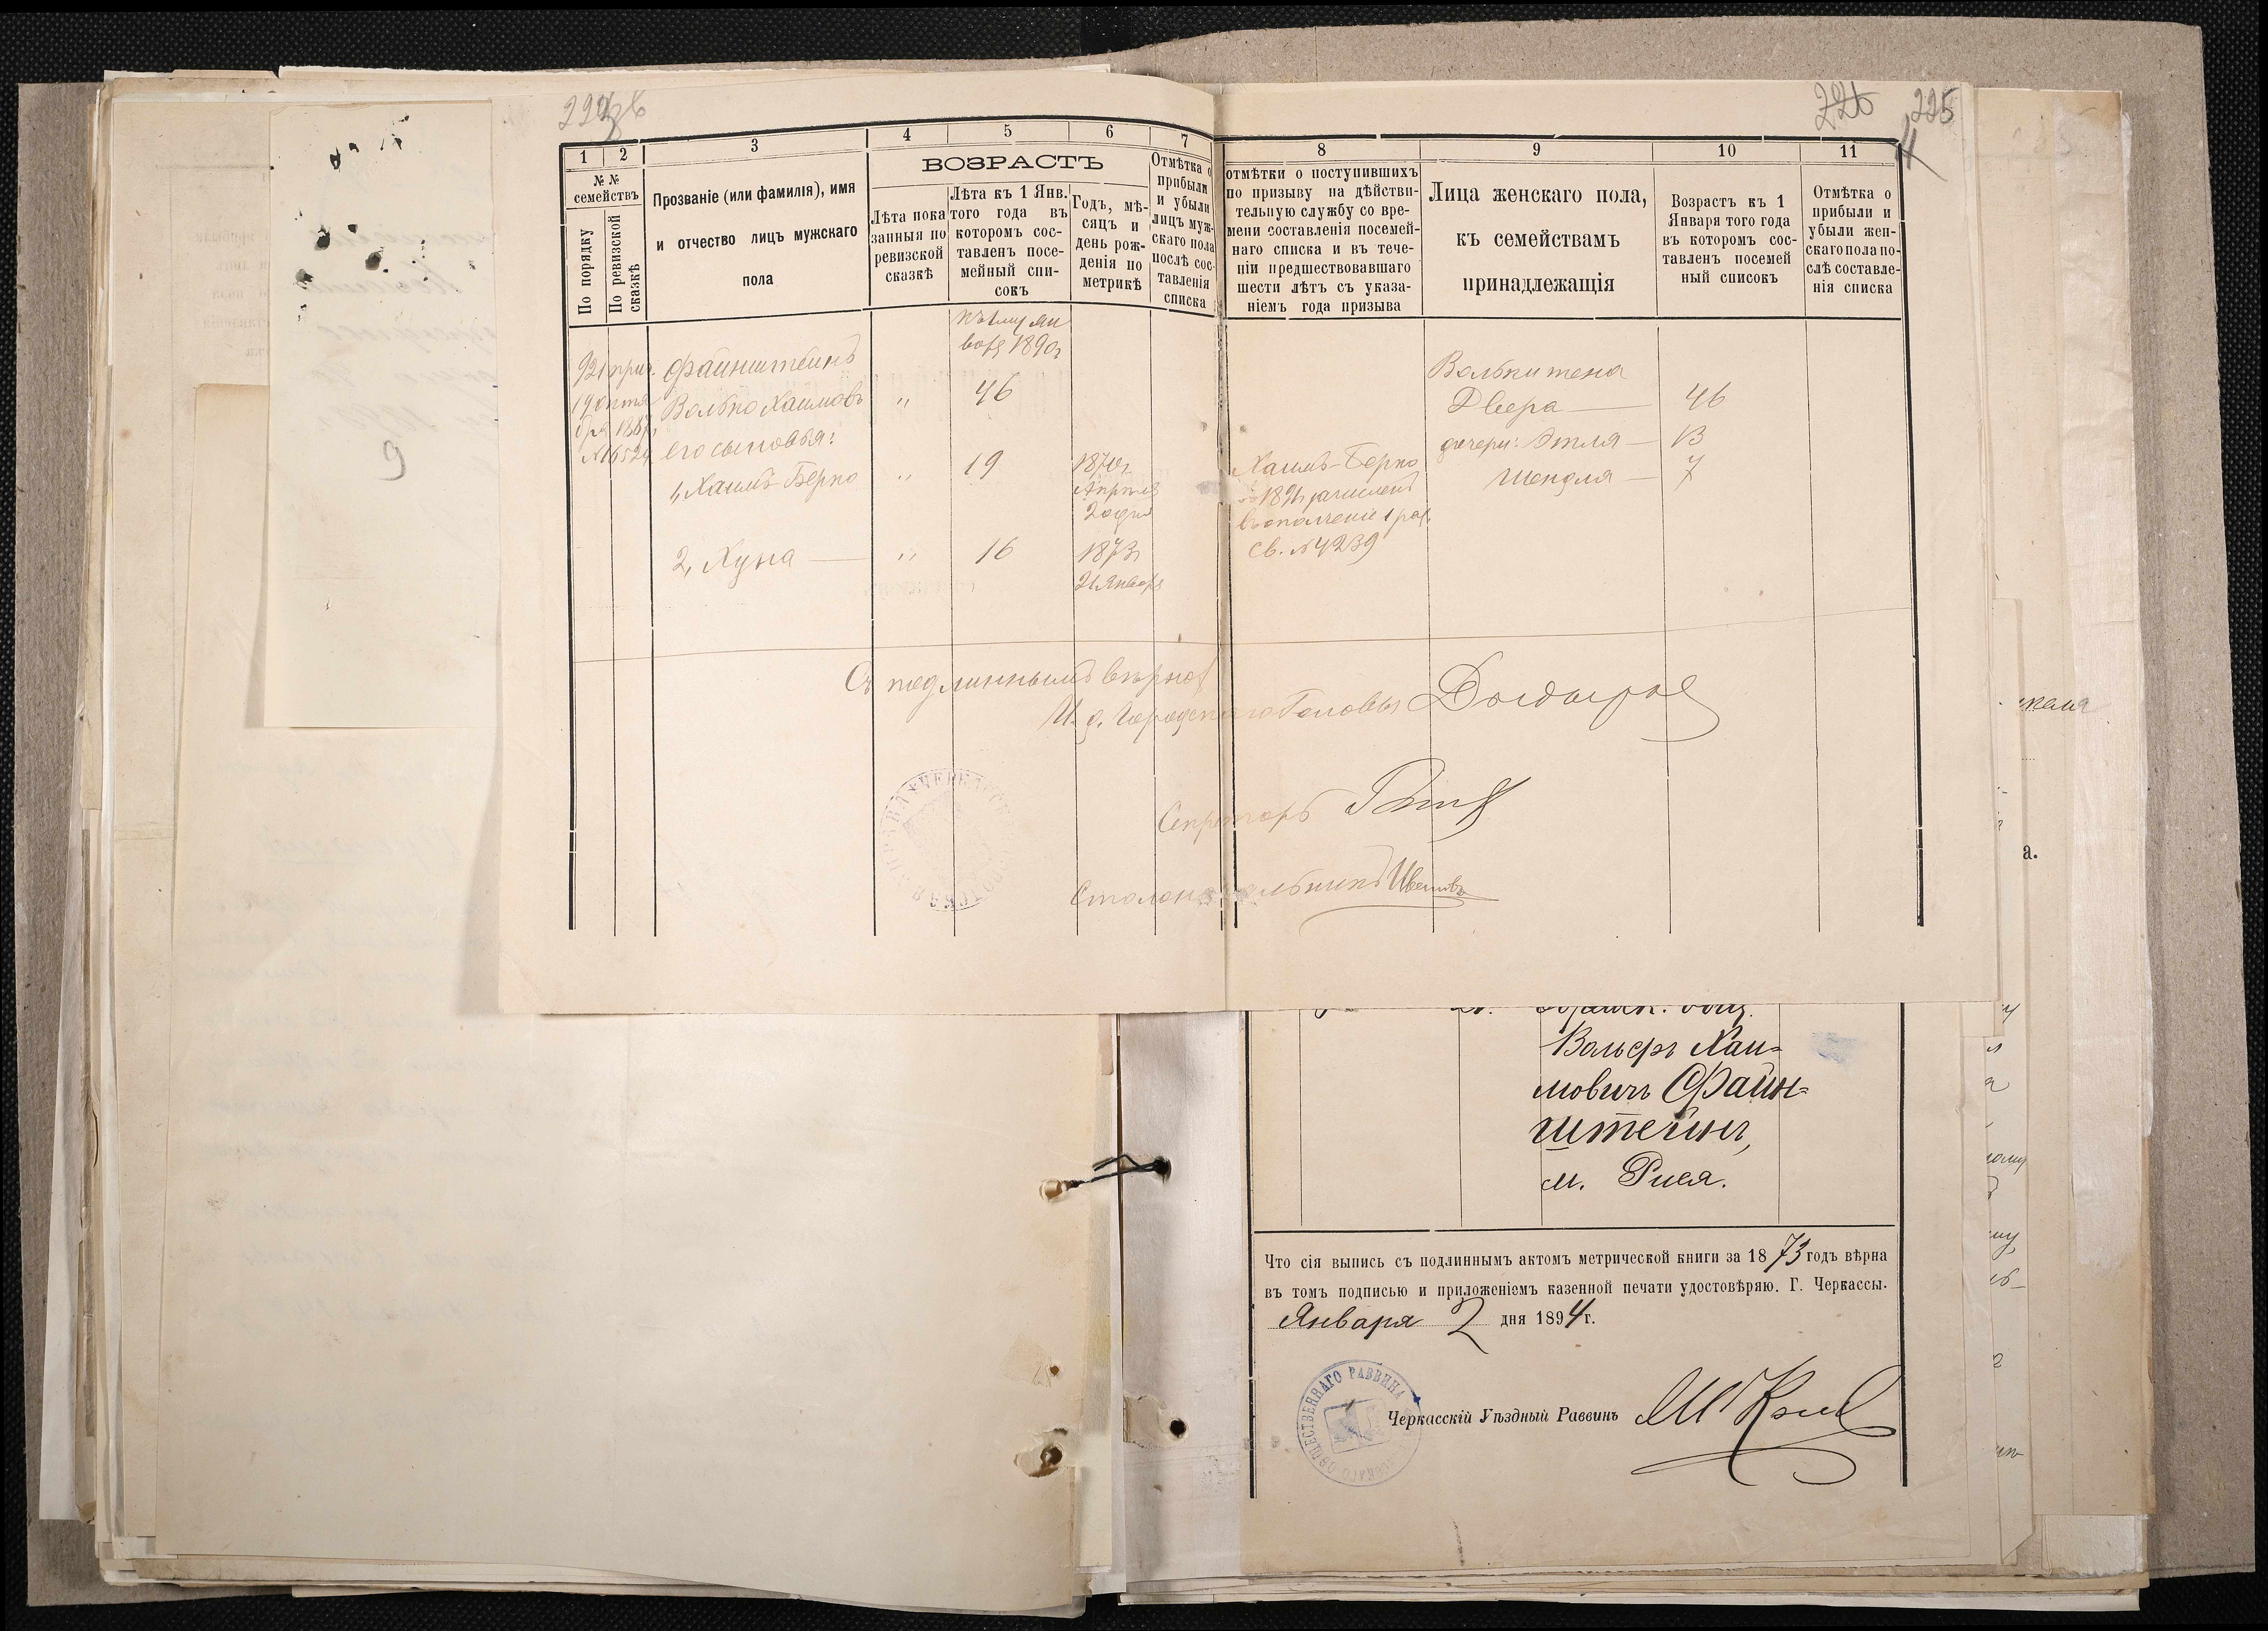 226
225
1
2
3
4
5
6
7
8
9
10
11
№ №
семействъ
По порядку
По ревизской
сказкѣ
Прозваніе (или фамилія), имя
и отчество лицъ мужскаго
пола
ВОЗРАСТЪ
Лѣта пока
занныя по
ревизской
сказкѣ
Лѣта къ 1 Янв.
того года въ
которомъ сос-
тавленъ посе-
мейный спи-
сокъ
Годъ, мѣ-
сяцъ и
день рож-
денія по
метрикѣ
Отмѣтка о
прибыли
и убыли
лицъ муж-
скаго пола
послѣ сос-
тавленія
списка
отмѣтки о поступившихъ
по призыву на дѣйстви-
тельную службу со вре-
мени составленія посемей-
наго списка и въ тече-
ніи предшествовавшаго
шести лѣтъ съ указа-
ніемъ года призыва
Лица женскаго пола,
къ семействамъ
принадлежащія
Возрастъ къ 1
Января того года
въ которомъ сос-
тавленъ посемей
ный списокъ
Отмѣтка о
прибыли и
убыли жен-
скаго пола по-
слѣ составле-
нія списка
къ 1му Ян
варя 1890г
921 прич.
19 октя
бря 1887г
№16524
Файнштейнъ
Волько Хаимовъ " 46
его сыновья:
1, Хаимъ-Берко " 19
1870г
Апрѣля
20 дня
2, Хуна — " 16
1873г
21 Января
Хаимъ-Берко
1891 зачисленъ
въ ополченіе 1 раз.
св. №4239
Волька жена
Двера — 46
дочери: Этля — 13
Шендля — 7
Съ подлиннымъ вѣрно:
И. д. Городскаго Головы
Секретарь
Столоначальникъ Ивановъ
9
Вольфъ Хаи-
мовичъ Файн-
штейнъ,
м. Рися.
Что сія выпись съ подлиннымъ актомъ метрической книги за 1873 годъ вѣрна
въ томъ подписью и приложеніемъ казенной печати удостовѣряю. Г. Черкассы.
Января 2 дня 1894 г.
ОБЩЕСТВЕННАГО РАВВИНА
Черкасскій Уѣздный Раввинъ
а.